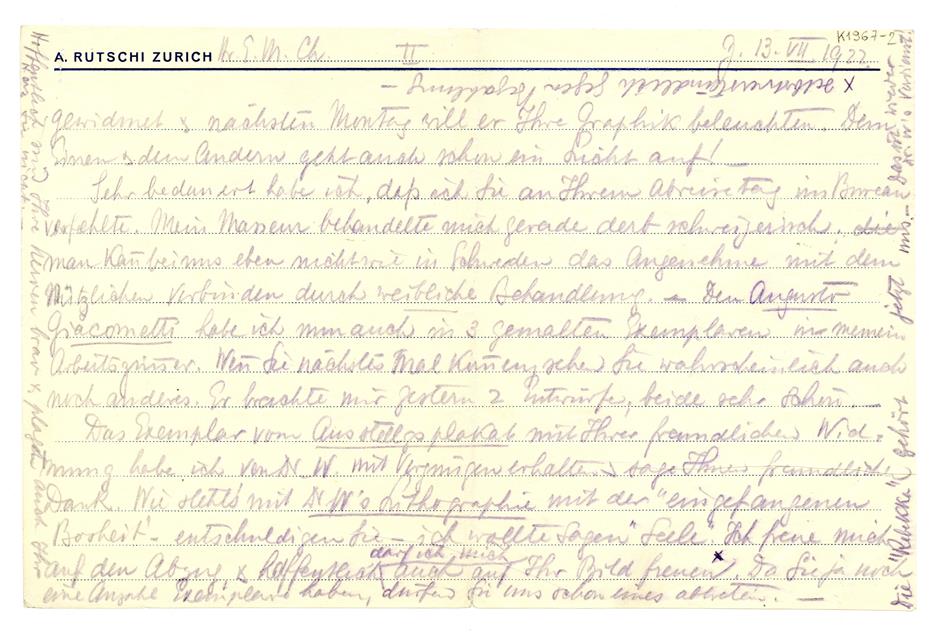 K1967-2
A. RUTSCHI ZURICH Hr. E. M. Ch. II Z. 13. VII 1922
x selbstverständlich gegen Bezahlung –
gewidmet & nächsten Montag will er Ihre Graphik beleuchten. Dem
Einen & dem Andern geht auch schon ein Licht auf! —
Sehr bedauert habe ich, daß ich Sie an Ihrem Abreisetag im Bureau
verfehlte. Mein Masseur behandelte mich gerade derb schweizerisch, die
man kan̄ bei uns eben nicht wie in Schweden das Angenehme mit dem
Nützlichen verbinden durch weibliche Behandlung. – Den Augusto
Giacometti habe ich nun auch in 3 gemalten Exemplaren in meinem
Arbeitszim̄er. Wen̄ Sie nächstes Mal kom̄en, sehen Sie wahrscheinlich auch
noch anderes. Er brachte mir gestern 2 Entwürfe, beide sehr schön. —
Das Exemplar vom Ausstellgsplakat mit Ihrer freundlichen Wid-
mung habe ich von Dr W. mit Vergnügen erhalten & sage Ihnen freundlich.
Dank. Wie steht's mit Dr W's Lithographie mit der "eingefangenen
Bosheit" – entschuldigen Sie – ich wollte sagen "Seele". Ich freue mich
auf den Abzug & hoffentlich darf ich mich auch auf Ihr Bild freuen x. Da Sie ja noch
eine Anzahl Exemplare haben, dürfen Sie uns schon eines abtreten. —
Hoffentlich sind Ihre Nerven brav & plagen auch Ihr
Herz Sie nicht.
Die "Rebekka" gehört jetzt uns. – Das ist wieder